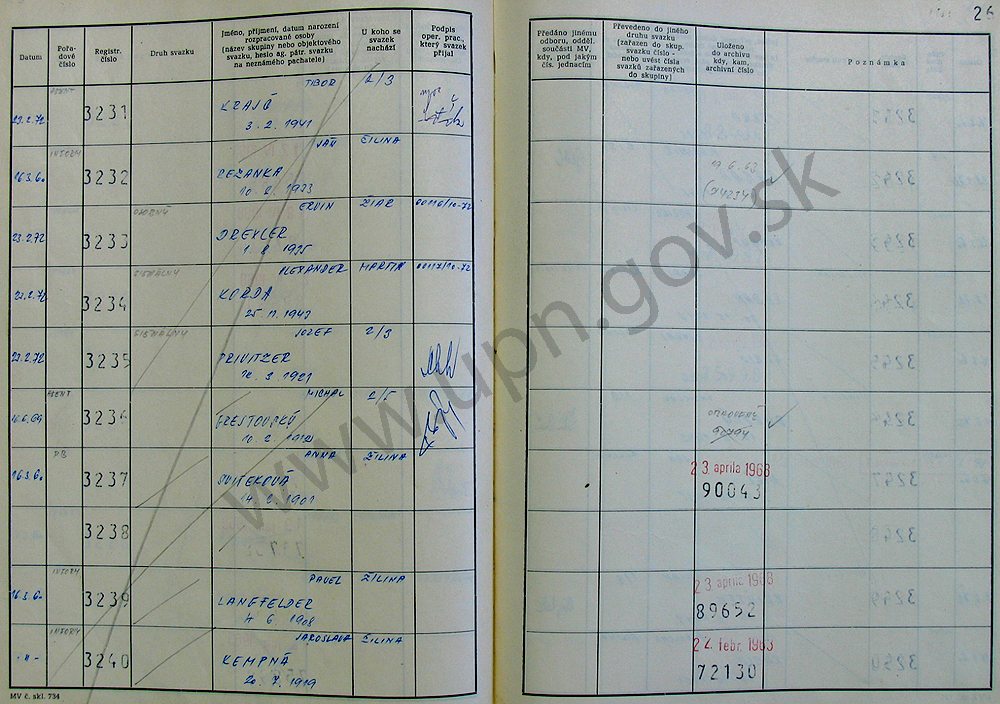 26
Datum
Pořadové číslo
Registr. číslo
Druh svazku
Jméno, příjmení, datum narození rozpracované osoby (název skupiny nebo objektového svazku, heslo ag. pátr. svazku na neznámého pachatele)
U koho se svazek nachází
Podpis oper. prac., který svazek přijal
Předáno jinému odboru, odděl. součásti MV, kdy, pod jakým čís. jednacím
Převedeno do jiného druhu svazku (zařazen do skup. svazku číslo - nebo uvést čísla svazků zařazených do skupiny)
Uloženo do archivu kdy, kam, archivní číslo
Poznámka
AGENT TIBOR 2/3
23.2.72 3231 KRAJČ
3. 2. 1941
INFORM JÁN ŽILINA
16.3.60 3232 REZANKA 19 6. 63
10. 2. 1933 (74234)
OSOBNÝ ERVIN ŽIAR 00116/10-72
23.2.72 3233 DREXLER
1. 8. 1935
SIGNÁLNY ALEXANDER MARTIN 00117/10-72
3234 KORDA
25 11. 1943
SIGNÁLNY JOZEF 2/3
23.2.72 3235 PRIVITZER
3. 1921
AGENT MICHAL 2/5
3236
10. 2.
PB ANNA ŽILINA 23. apríla 1963
16.3.60 3237 SVITEKOVÁ 90043
14. 2. 1901
3238
INFORM PAVEL ŽILINA 23. apríla 1963
16.3.60 3239 LANGFELDER 89652
4 6. 1908
INFORM JAROSLAVA ŽILINA 22. febr. 1963
-"- 3240 KEMPNÁ 72130
20. 7. 1919
MV č. skl. 734
www.upn.gov.sk